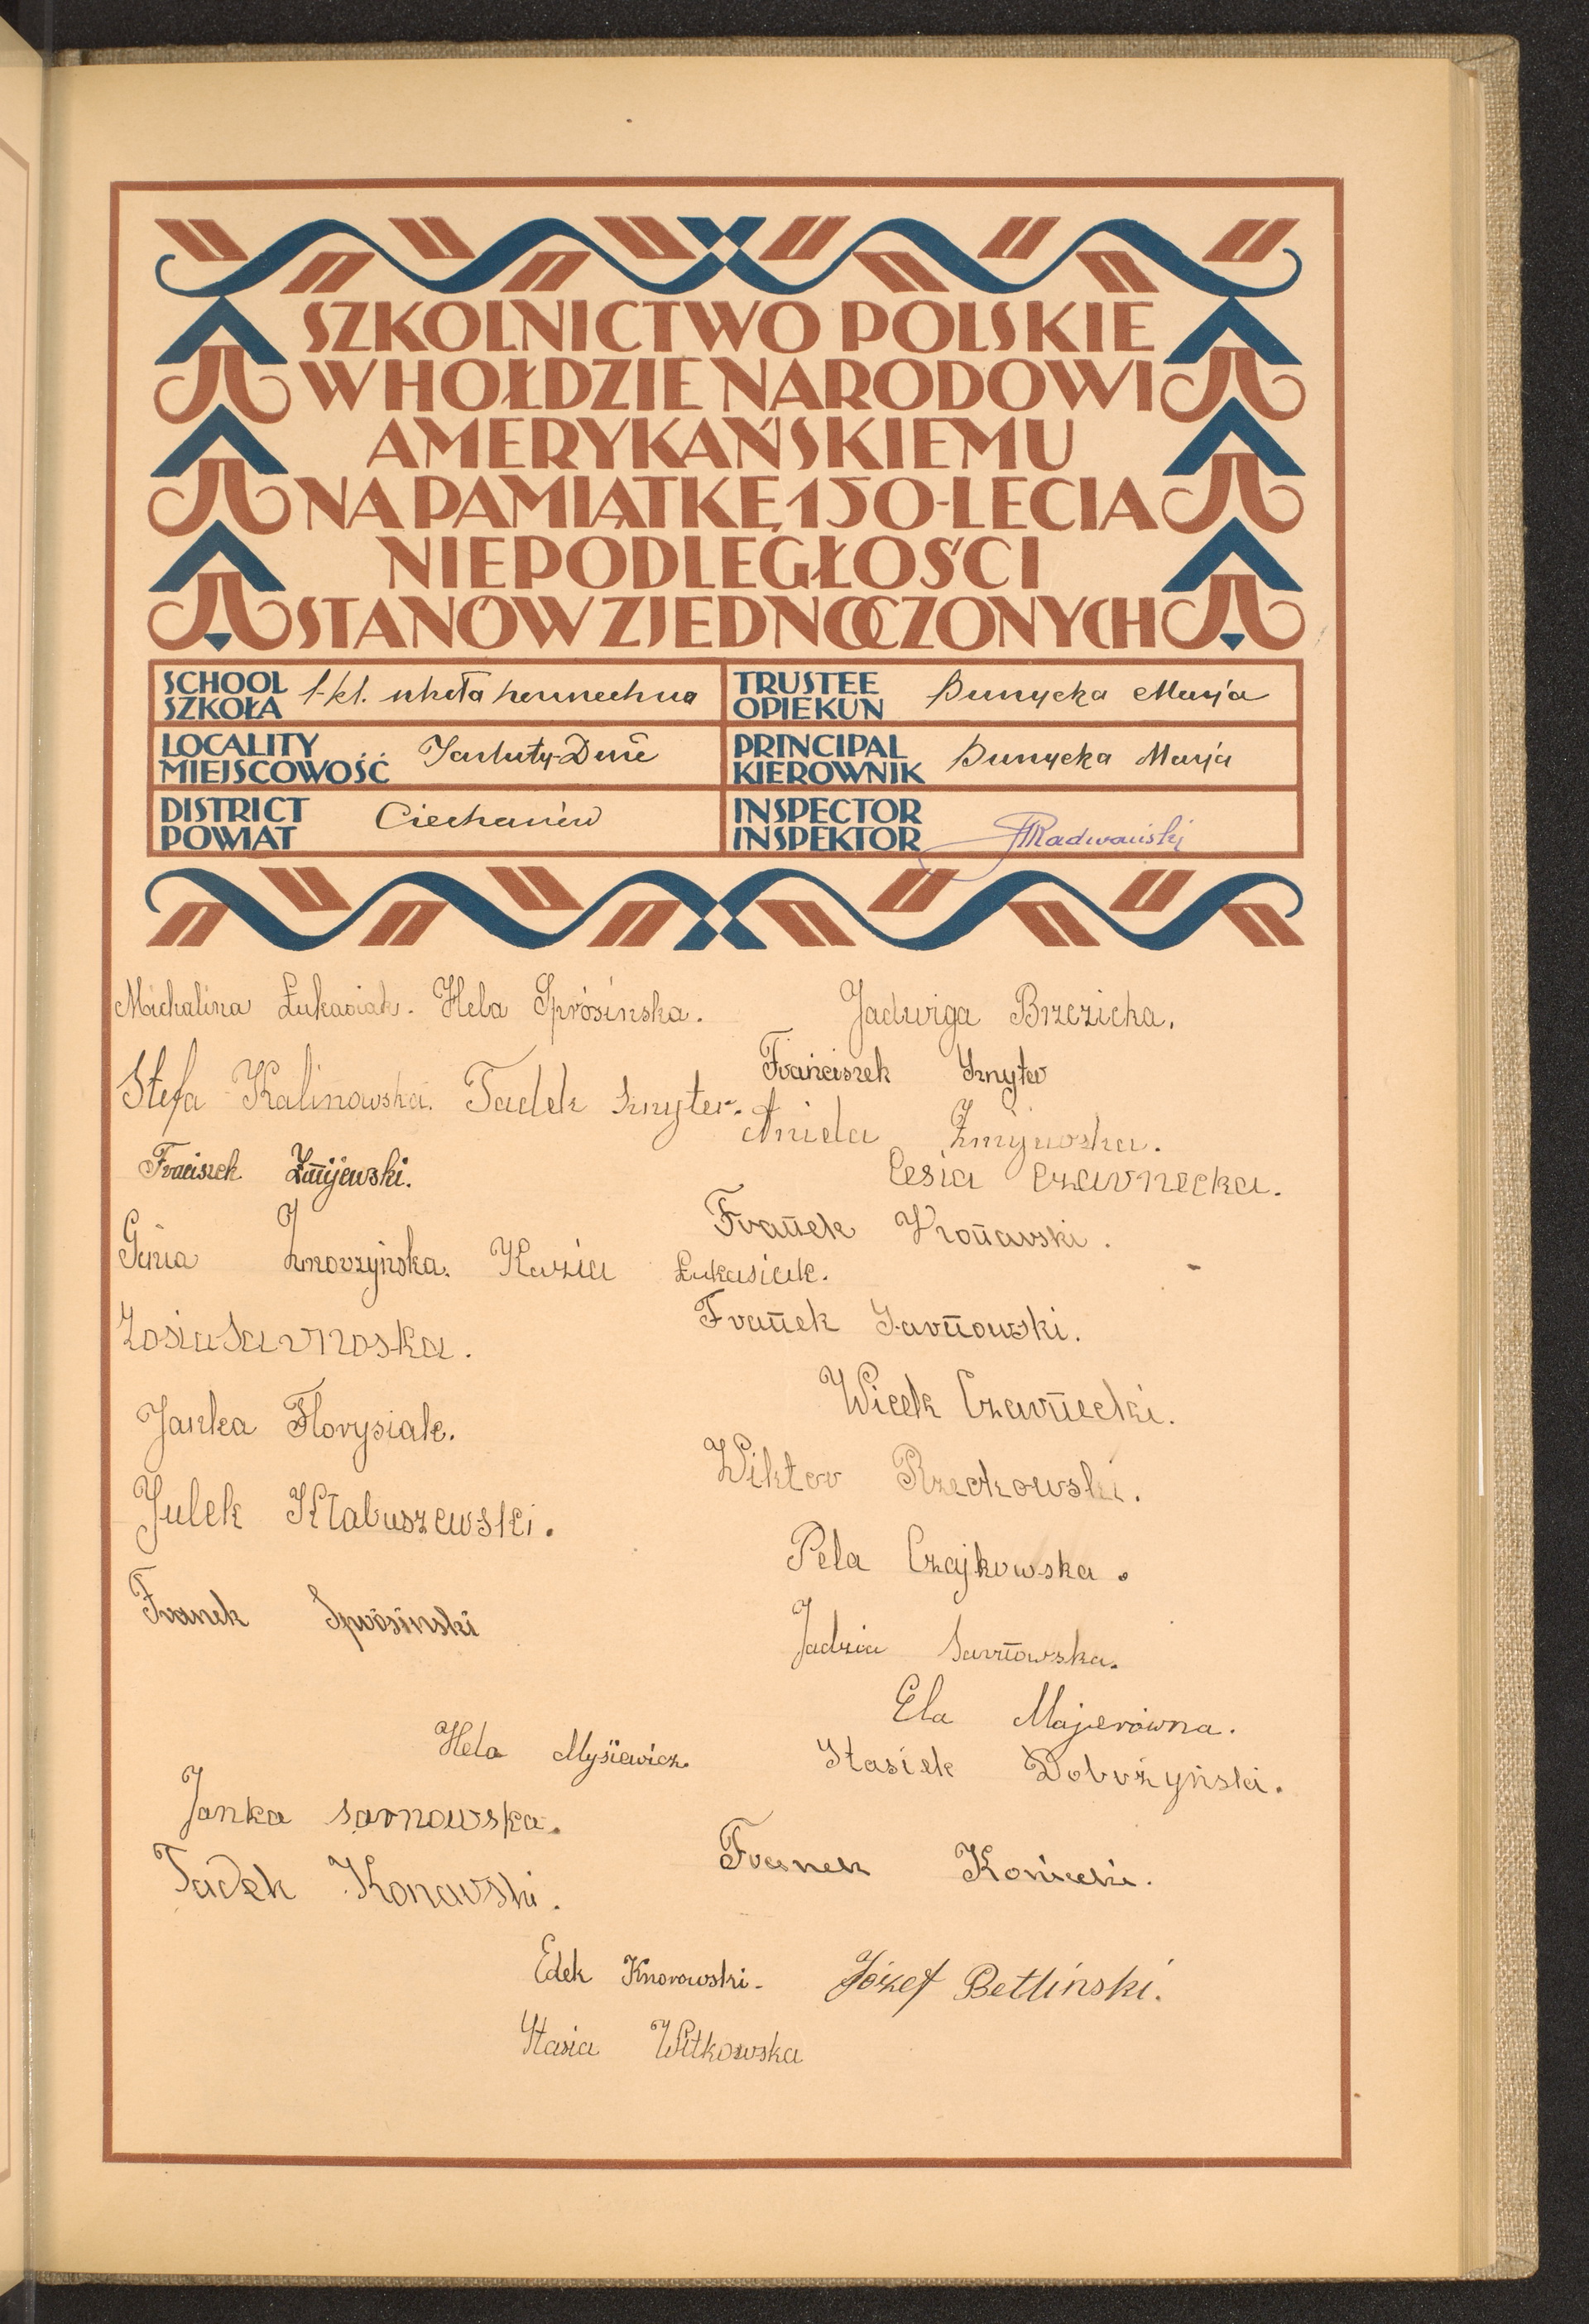 SZKOLNICTWO POLSKIE
W HOŁDZIE NARODOWI
AMERYKAŃSKIEMU
NA PAMIĄTKĘ 150-LECIA
NIEPODLEGŁOŚCI
STANÓW ZJEDNOCZONYCH
SCHOOL
SZKOŁA 1-kl. szkoła powszechna
TRUSTEE
OPIEKUN Marja
LOCALITY
MIEJSCOWOŚĆ
PRINCIPAL
KIEROWNIK Marja
DISTRICT
POWIAT Ciechanów
INSPECTOR
INSPEKTOR Radwański
Michalina Łukasiak. Hela Sprósinska. Jadwiga Brzezicka.
Franciszek Sznyter
Stefa Kalinowska. Tadek Sznyter.
Aniela Żmijewska.
Fraciszek Żmijewski. Cesia Czarnecka.
Franek Kronawski.
Genia Knorzyńska. Kazia Łukasiak.
Zosia Sarnoska. Franek Sarnowski.
Wicek Czarnecki.
Janka Florysiak.
Wiktor Rzeczkowski.
Julek Kłabuszewski.
Pela Czajkowska.
Franek Sprósinski
Jadzia Sarnowska.
Ela Majerówna.
Hela Mysiewicz. Stasiek Dobrzyński.
Janka Sarnowska.
Tadek Konawski. Franek Konicki.
Edek Knorowski. Józef Betlinski.
Stasia Witkowska